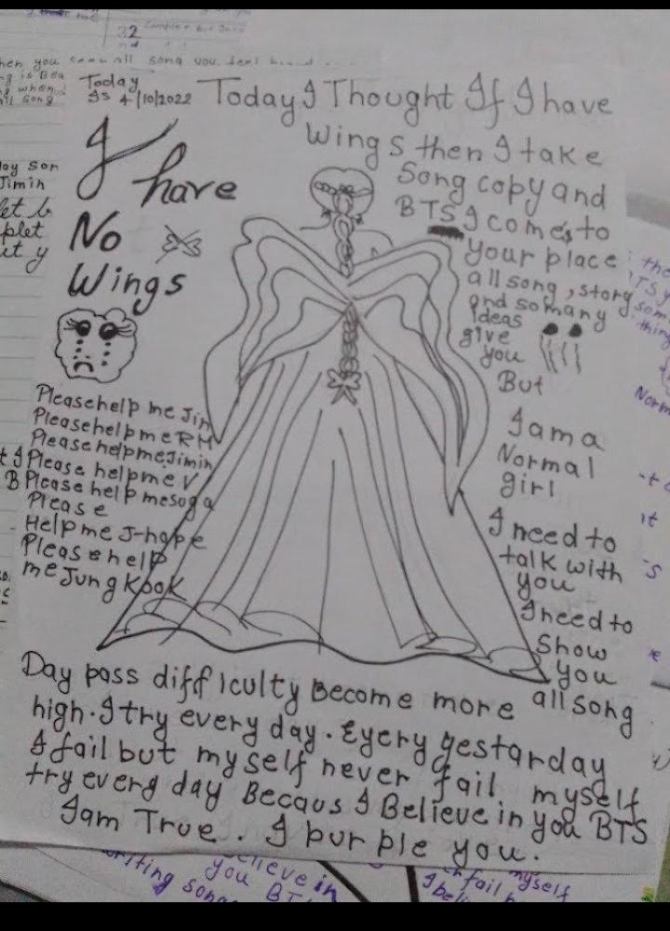 32
when you
Today
Is 4/10/2022
Today I Thought If I have
Wings then I take
Song copy and
BTS I comes to
your place
all song, story
and so many
ideas
give
you
But
I have
No
Wings
I am a
Normal
girl
I need to
talk with
you
I need to
Show
you
all song
Please help me Jin
Please help me RM
Please help me Jimin
Please help me V
Please help me suga
Please
Help me J-hope
Please help
me Jung Kook
Day pass difficulty Become more
high. I try every day. Eyery yestarday
I fail but myself never fail myself
try every day Becaus I Believe in you BTS
I am True. I purple you.
Jimin
believe in
you BT
writing song
myself
fail